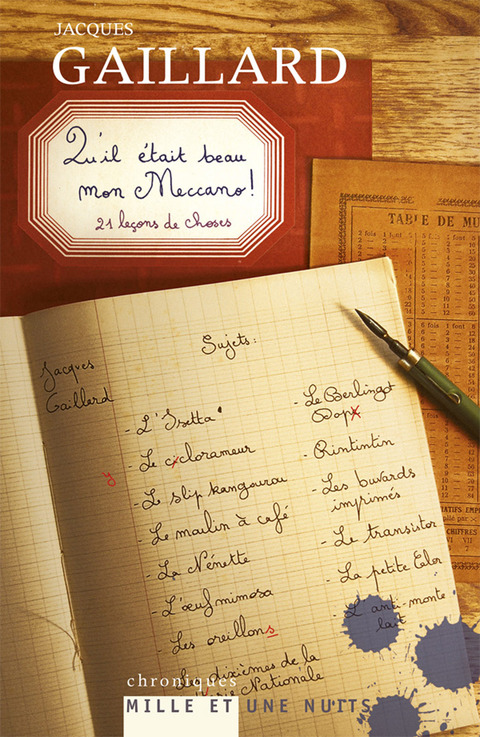 JACQUES
GAILLARD
Qu'il était beau
mon Meccano!
21 leçons de choses
TABLE DE MU
Jacques
Gaillard
Sujets:
- L'Isetta
- Le ciclorameur
y
- Le slip kangourou
- Le moulin à café
- La Nénette
- L'œuf mimosa
- Les oreillons
dixièmes de la
Nationale
- Le Berlingot
Dop
- Rintintin
- Les buvards
imprimés
- Le transistor
- La petite Color
- L'anti-monte
lait
chroniques
MILLE ET UNE NUITS